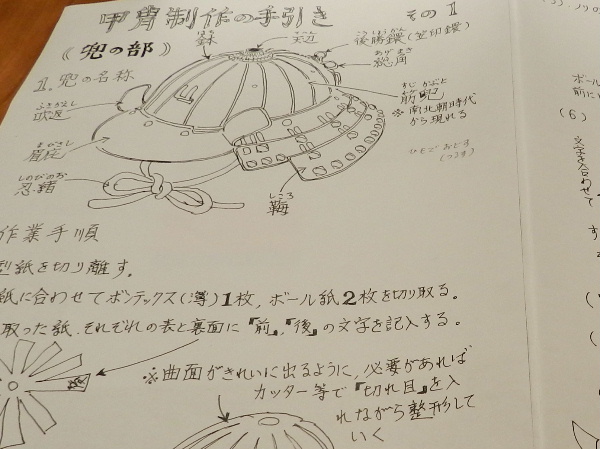 甲冑制作の手引き その1
《兜の部》
1. 兜の名称
天辺
後勝鐶(笠印鐶)
あげまき
総角
すじかぶと
筋兜
※南北朝時代
から現れる
ふきかえし
吹返
まびさし
眉庇
しのびのお
忍緒
しころ
作業手順
型紙を切り離す。
紙に合わせてボンテックス(薄)1枚, ボール紙2枚を切り取る。
取った紙、それぞれの表と裏面に「前」,「後」の文字を記入する。
※曲面がきれいに出るように, 必要があれば
カッター等で「切れ目」を入
れながら整形して
いく
ボール
前に
(6)
文字を合わせて